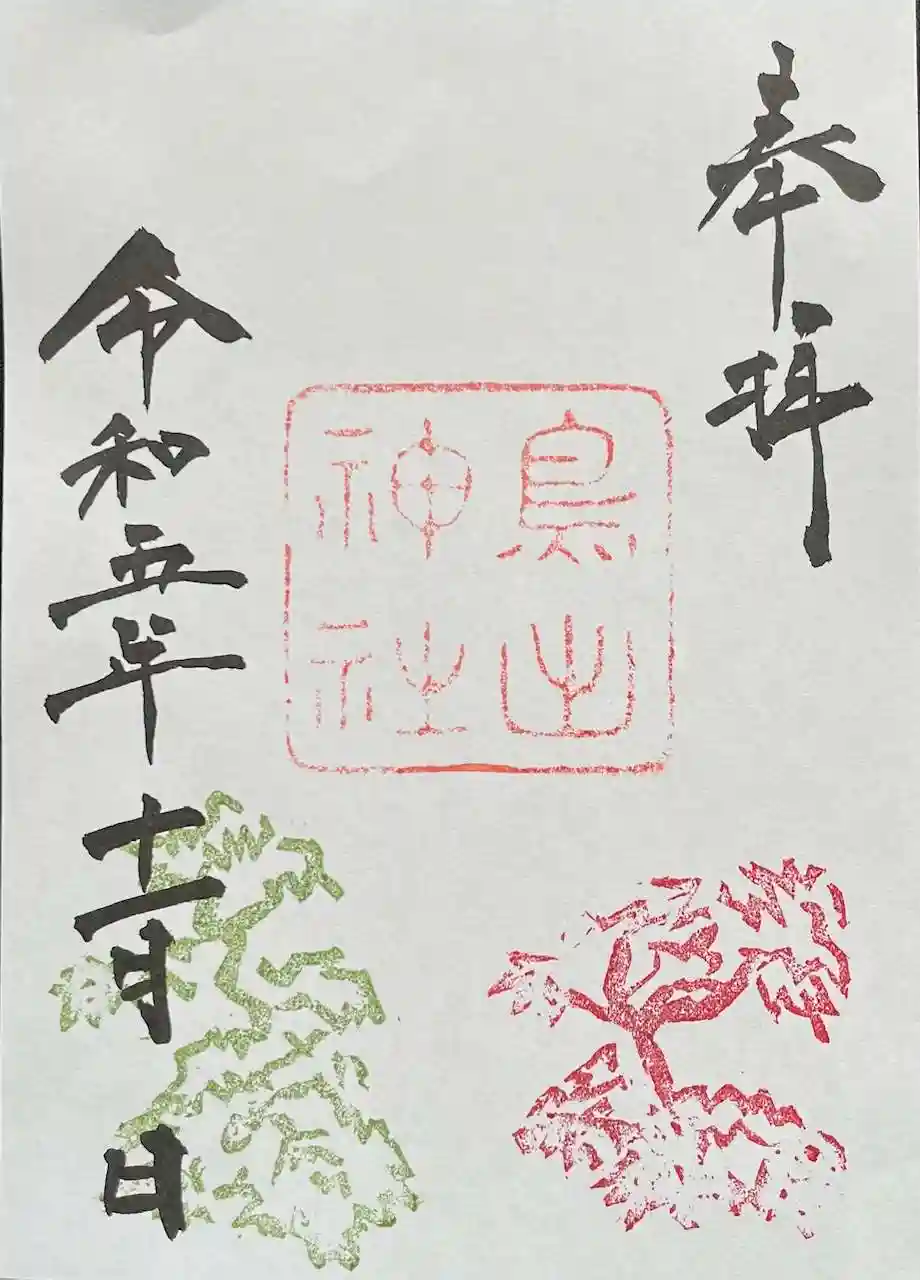 奉拝
鳥出
神社
令和五年十一月 日